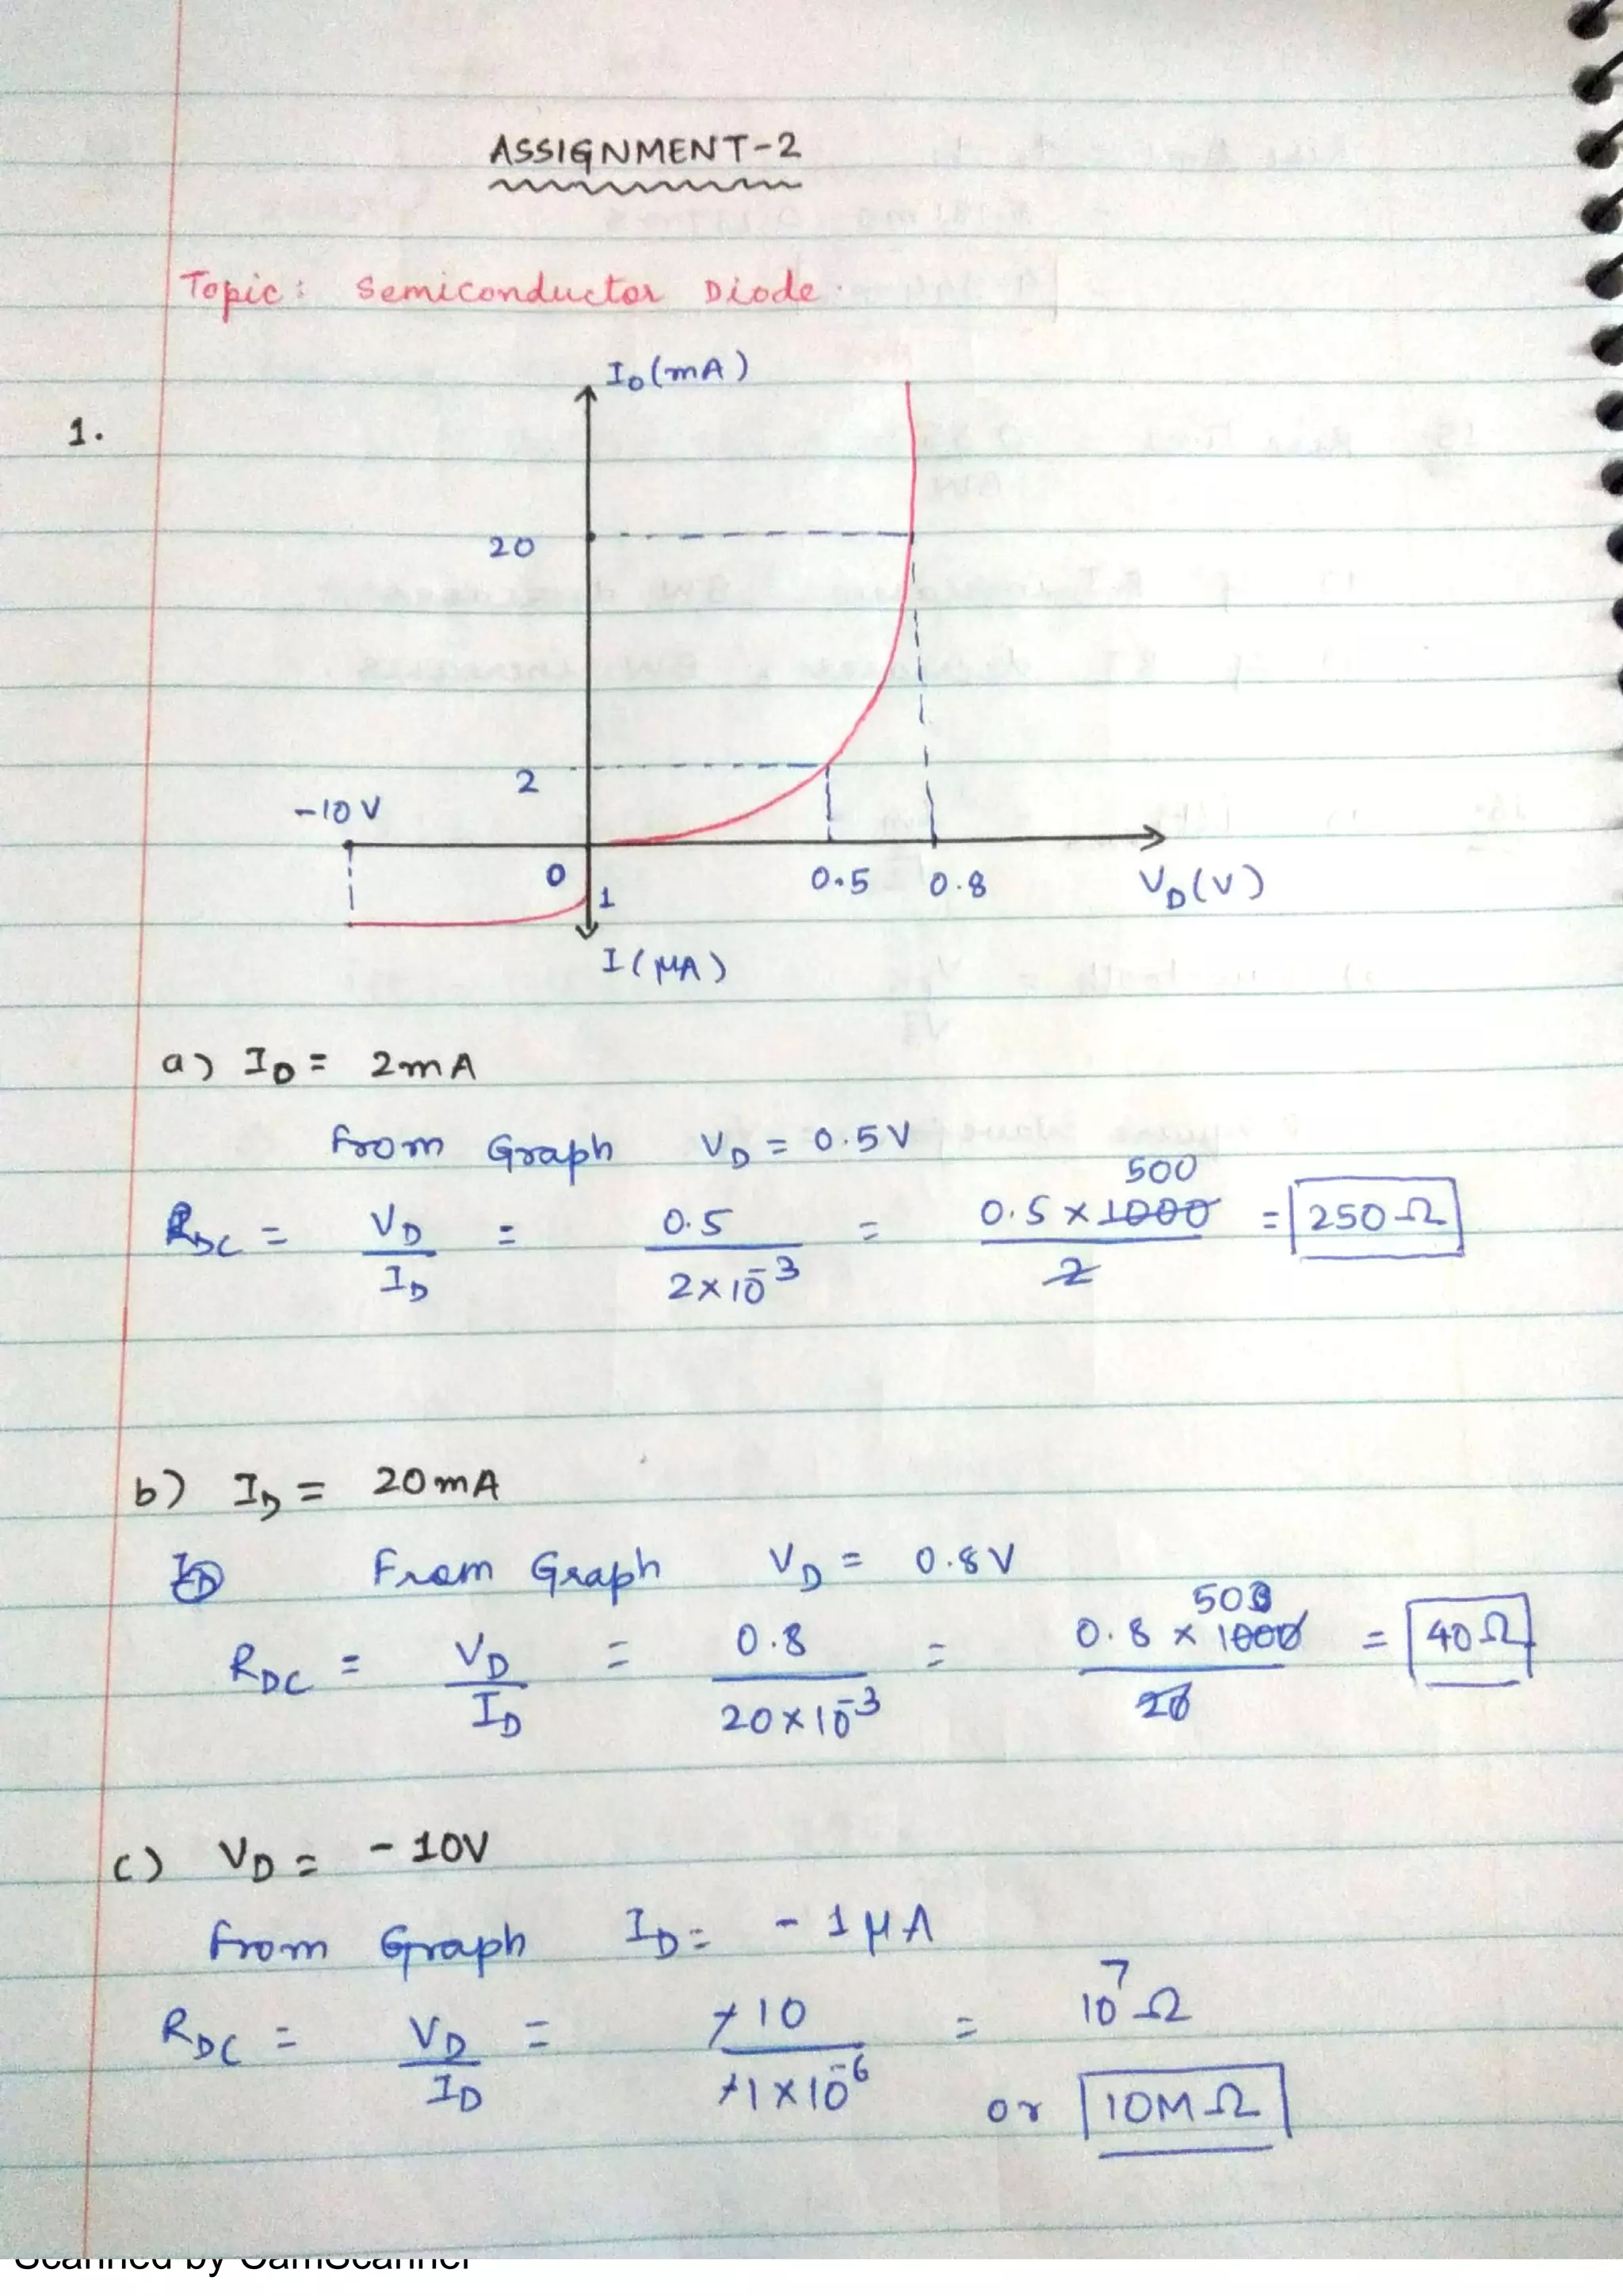 ASSIGNMENT-2
Topic: Semiconductor Diode.
1.
I_D(mA)
20
2
-10V
0
1
0.5
0.8
V_D(V)
I(μA)
a) I_D = 2mA
From Graph V_D = 0.5V
R_DC = V_D/I_D = 0.5/2×10^-3 = 0.5×1000/2 500 = 250Ω
b) I_D = 20mA
I_D From Graph V_D = 0.8V
R_DC = V_D/I_D = 0.8/20×10^-3 = 0.8×1000/20 = 40Ω
c) V_D = -10V
From Graph I_D = -1μA
R_DC = V_D/I_D = -10/-1×10^-6 = 10^7Ω
or 10MΩ